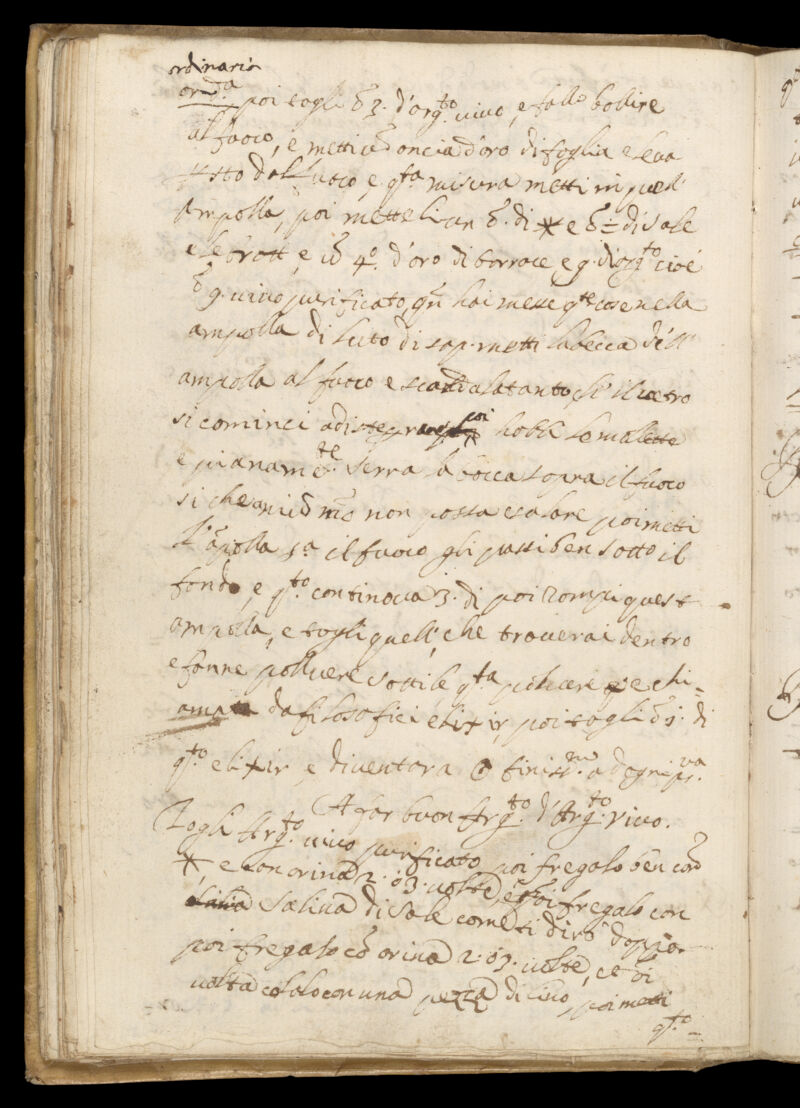 ordinario
ord.ª
poi togli ℥ 3. d'arg.to vivo, e fallo bollire
al fuoco, e metti oncia d'oro di foglia e leva
dal fuoco, e q.ta misura metti in quell'
ampolla, poi metteli un ℥. di * e ℥ di sale
e 4.º d'oro di borrace, e g. d'arg.to cioè
℥ 9. vivo purificato, qñ hai messe q.te cose nella
ampolla di luto di sap. metti la bocca dell'
ampolla al fuoco e scaldala tanto, ch' il vetro
si cominci a poi le molette
e pianam.te serra la bocca sopra il fuoco
si che non possa esalare poi metti
l'āpolla s.ª il fuoco ben sotto il
fondo, e q.to continova 3. dì poi rompi quest
ampolla, e togli quell', che troverai dentro
e fanne polvere sottile q.ta polvere e chi=
amata da filosofici elixir, poi togli ℥ j. di
q.to elixir, e diventara ☉ finiss.mo ad ogni p.va
A far buon Arg.to d'Arg.to vivo.
Togli Arg.to vivo purificato, poi fregalo ben con
*, e con orina 2. ò 3. volte, e poi fregalo con
Salina di Sale come ti dirò doppo.
poi fregalo cō orina 2. ò 3. volte, et
volta colalo con una pezza di poi metti
q.to